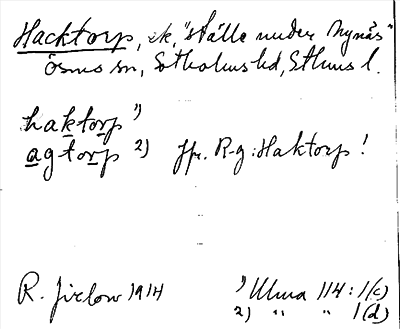 Hacktorp, ek, "ställe under Nynäs"
Ösmo sn, Sotholms hd, Sthms l.
haktorp 1)
agtorp 2) Jfr. R-g: Haktorp!
R. Jirlow 1914 1) Ulma 114:1(c)
2) " " 1(d)